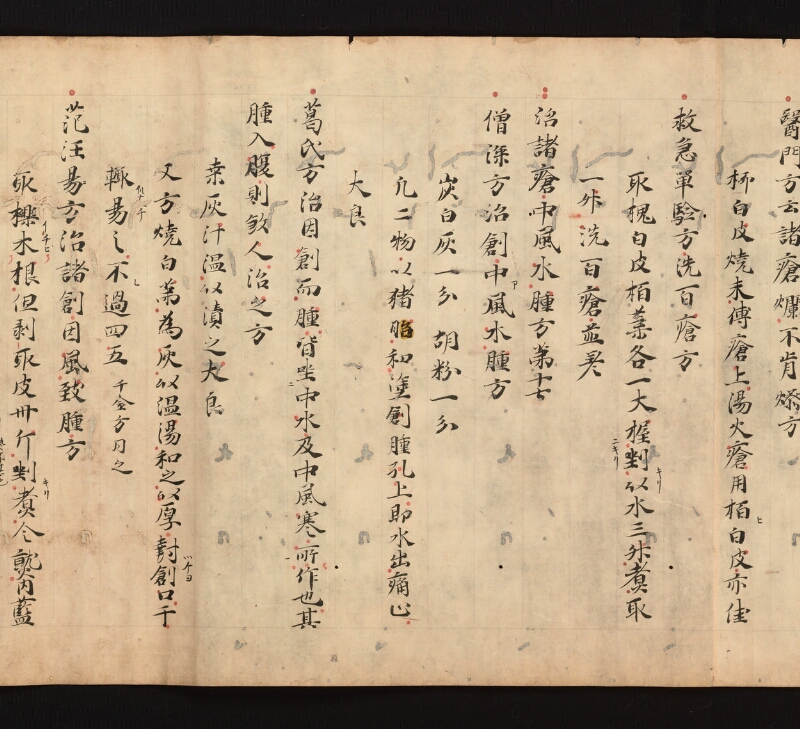 醫門方云諸瘡爛不肯燥方
柳白皮燒末傅瘡上湯火瘡用栢白皮亦佳
救急單驗方洗百瘡方
取槐白皮栢葉各一大握剉以水三升煮取
一升洗百瘡並差
治諸瘡中風水腫方第十七
僧深方治創中風水腫方
炭白灰一分 胡粉一分
凡二物以猪脂和塗創腫孔上即水出痛止
大良
葛氏方治因創而腫皆坐中水及中風寒所作也其
腫入腹則煞人治之方
桒灰汁温以漬之大良
又方燒白葉為灰以温湯和之以厚封創口干
輙易之不過四五 千金方同之
范汪易方治諸創因風致腫方
取櫟木根但剥取皮卅斤剉煮令熟内藍